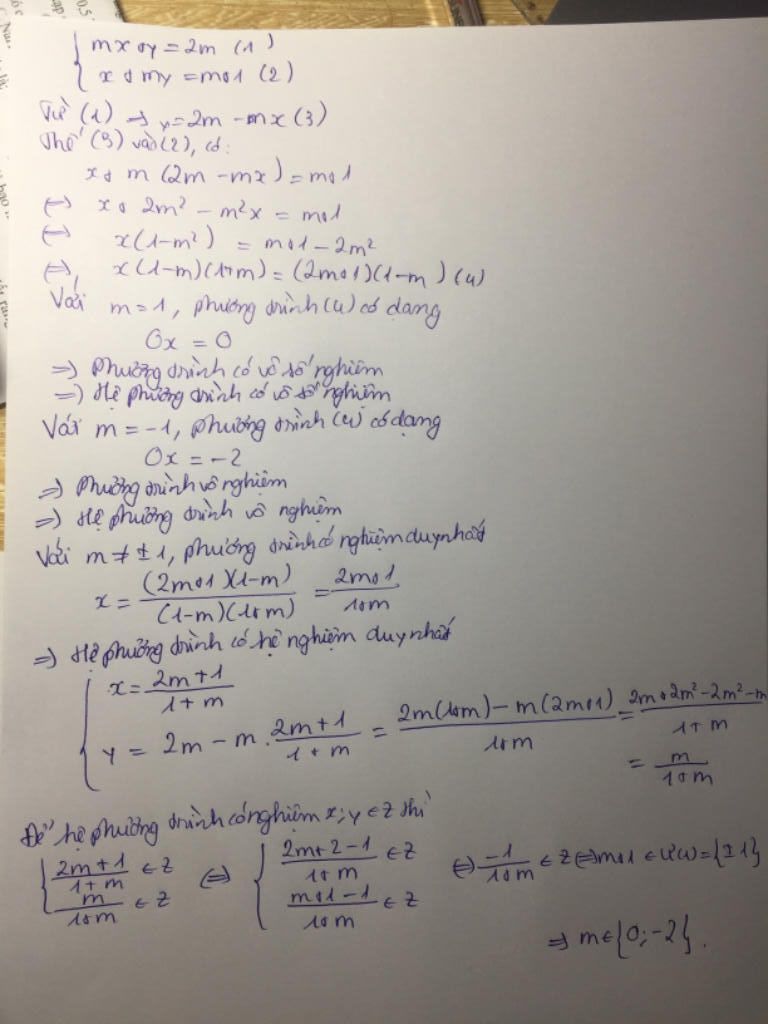 mx + y = 2m (1)
x + my = m+1 (2)
Từ (1) => y = 2m - mx (3)
Thế (3) vào (2), có:
x + m (2m - mx) = m+1
<=> x + 2m² - m²x = m+1
<=> x(1-m²) = m+1 - 2m²
<=> x(1-m)(1+m) = (2m+1)(1-m) (4)
Với m = 1, phương trình (4) có dạng
0x = 0
=> Phương trình có vô số nghiệm
=> Hệ phương trình có vô số nghiệm
Với m = -1, phương trình (4) có dạng
0x = -2
=> Phương trình vô nghiệm
=> Hệ phương trình vô nghiệm
Với m ≠ ±1, phương trình có nghiệm duy nhất
x = (2m+1)(1-m) / (1-m)(1+m) = 2m+1 / 1+m
=> Hệ phương trình có hệ nghiệm duy nhất
x = 2m+1 / 1+m
y = 2m - m . 2m+1 / 1+m = 2m(1+m) - m(2m+1) / 1+m = 2m + 2m² - 2m² - m / 1+m
= m / 1+m
Để hệ phương trình có nghiệm x; y ∈ Z thì
2m+1 / 1+m ∈ Z <=> 2m+2-1 / 1+m ∈ Z <=> -1 / 1+m ∈ Z <=> m+1 ∈ Ư(1) = {±1}
m / 1+m ∈ Z m+1-1 / 1+m ∈ Z
=> m ∈ {0; -2}.